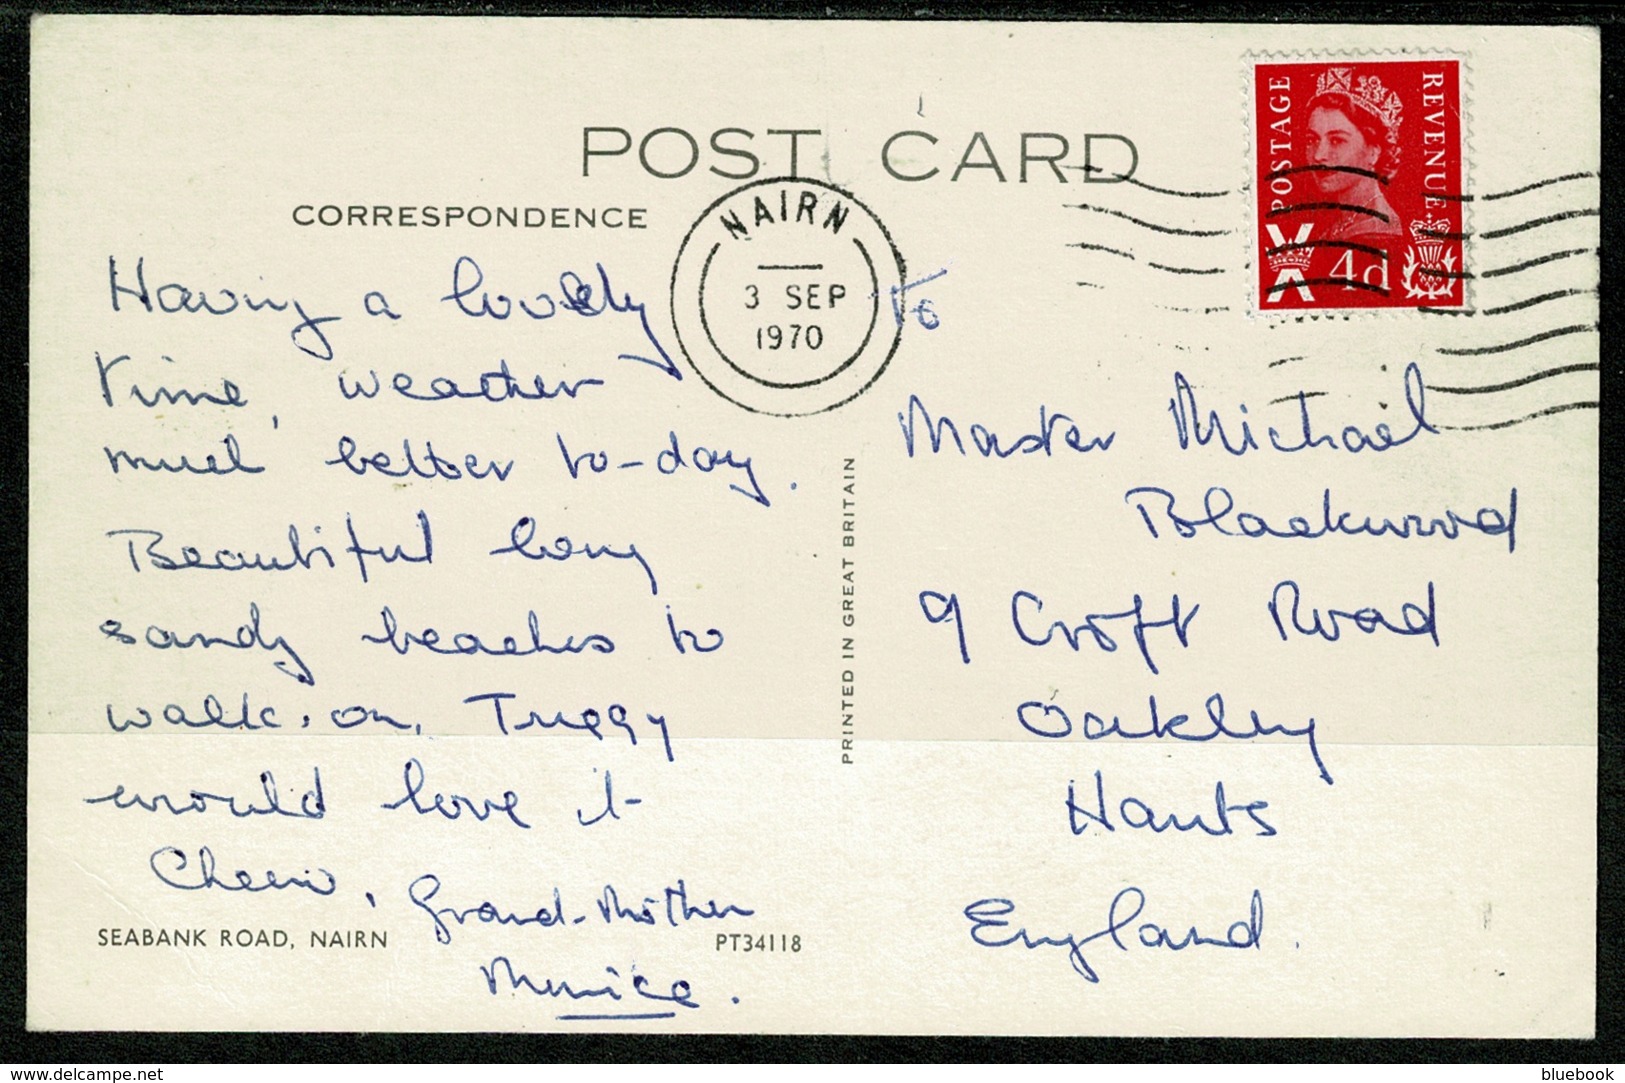 POST CARD
CORRESPONDENCE
POSTAGE
REVENUE
4d
NAIRN
3 SEP
1970
Having a lovely
time, weather
much better to-day.
Beautiful long
sandy beaches to
walk on,
would love it
Cheerio, Grand-Mother
SEABANK ROAD, NAIRN
PT34118
PRINTED IN GREAT BRITAIN
To
Master Michael
Blackwood
9 Croft Road
Oakley
Hants
England.
www.delcampe.net
bluebook